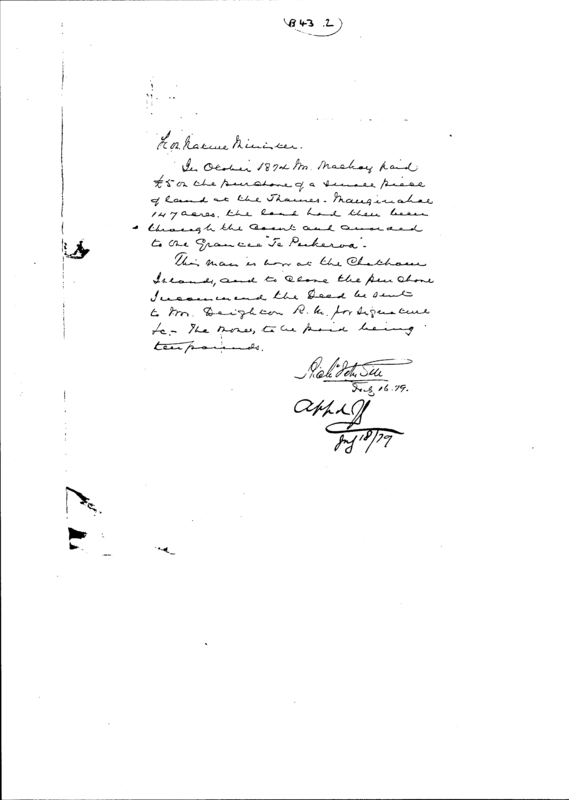 B 43 . 2
Hon Native Minister.
In October 187 Mr. Mackay paid
£5 on the purchase of a small piece
of land at the Thames.
147 acres. the land had then been
through the Court and awarded
to one Grantee "Te
This man is now at the Chatham
Islands, and to close the purchase
I recommend the Deed be sent
to Mr. Deighton R. M. for signature
&c - The money to be paid being
ten pounds.
July 16. 79.
Appd
July 18/79